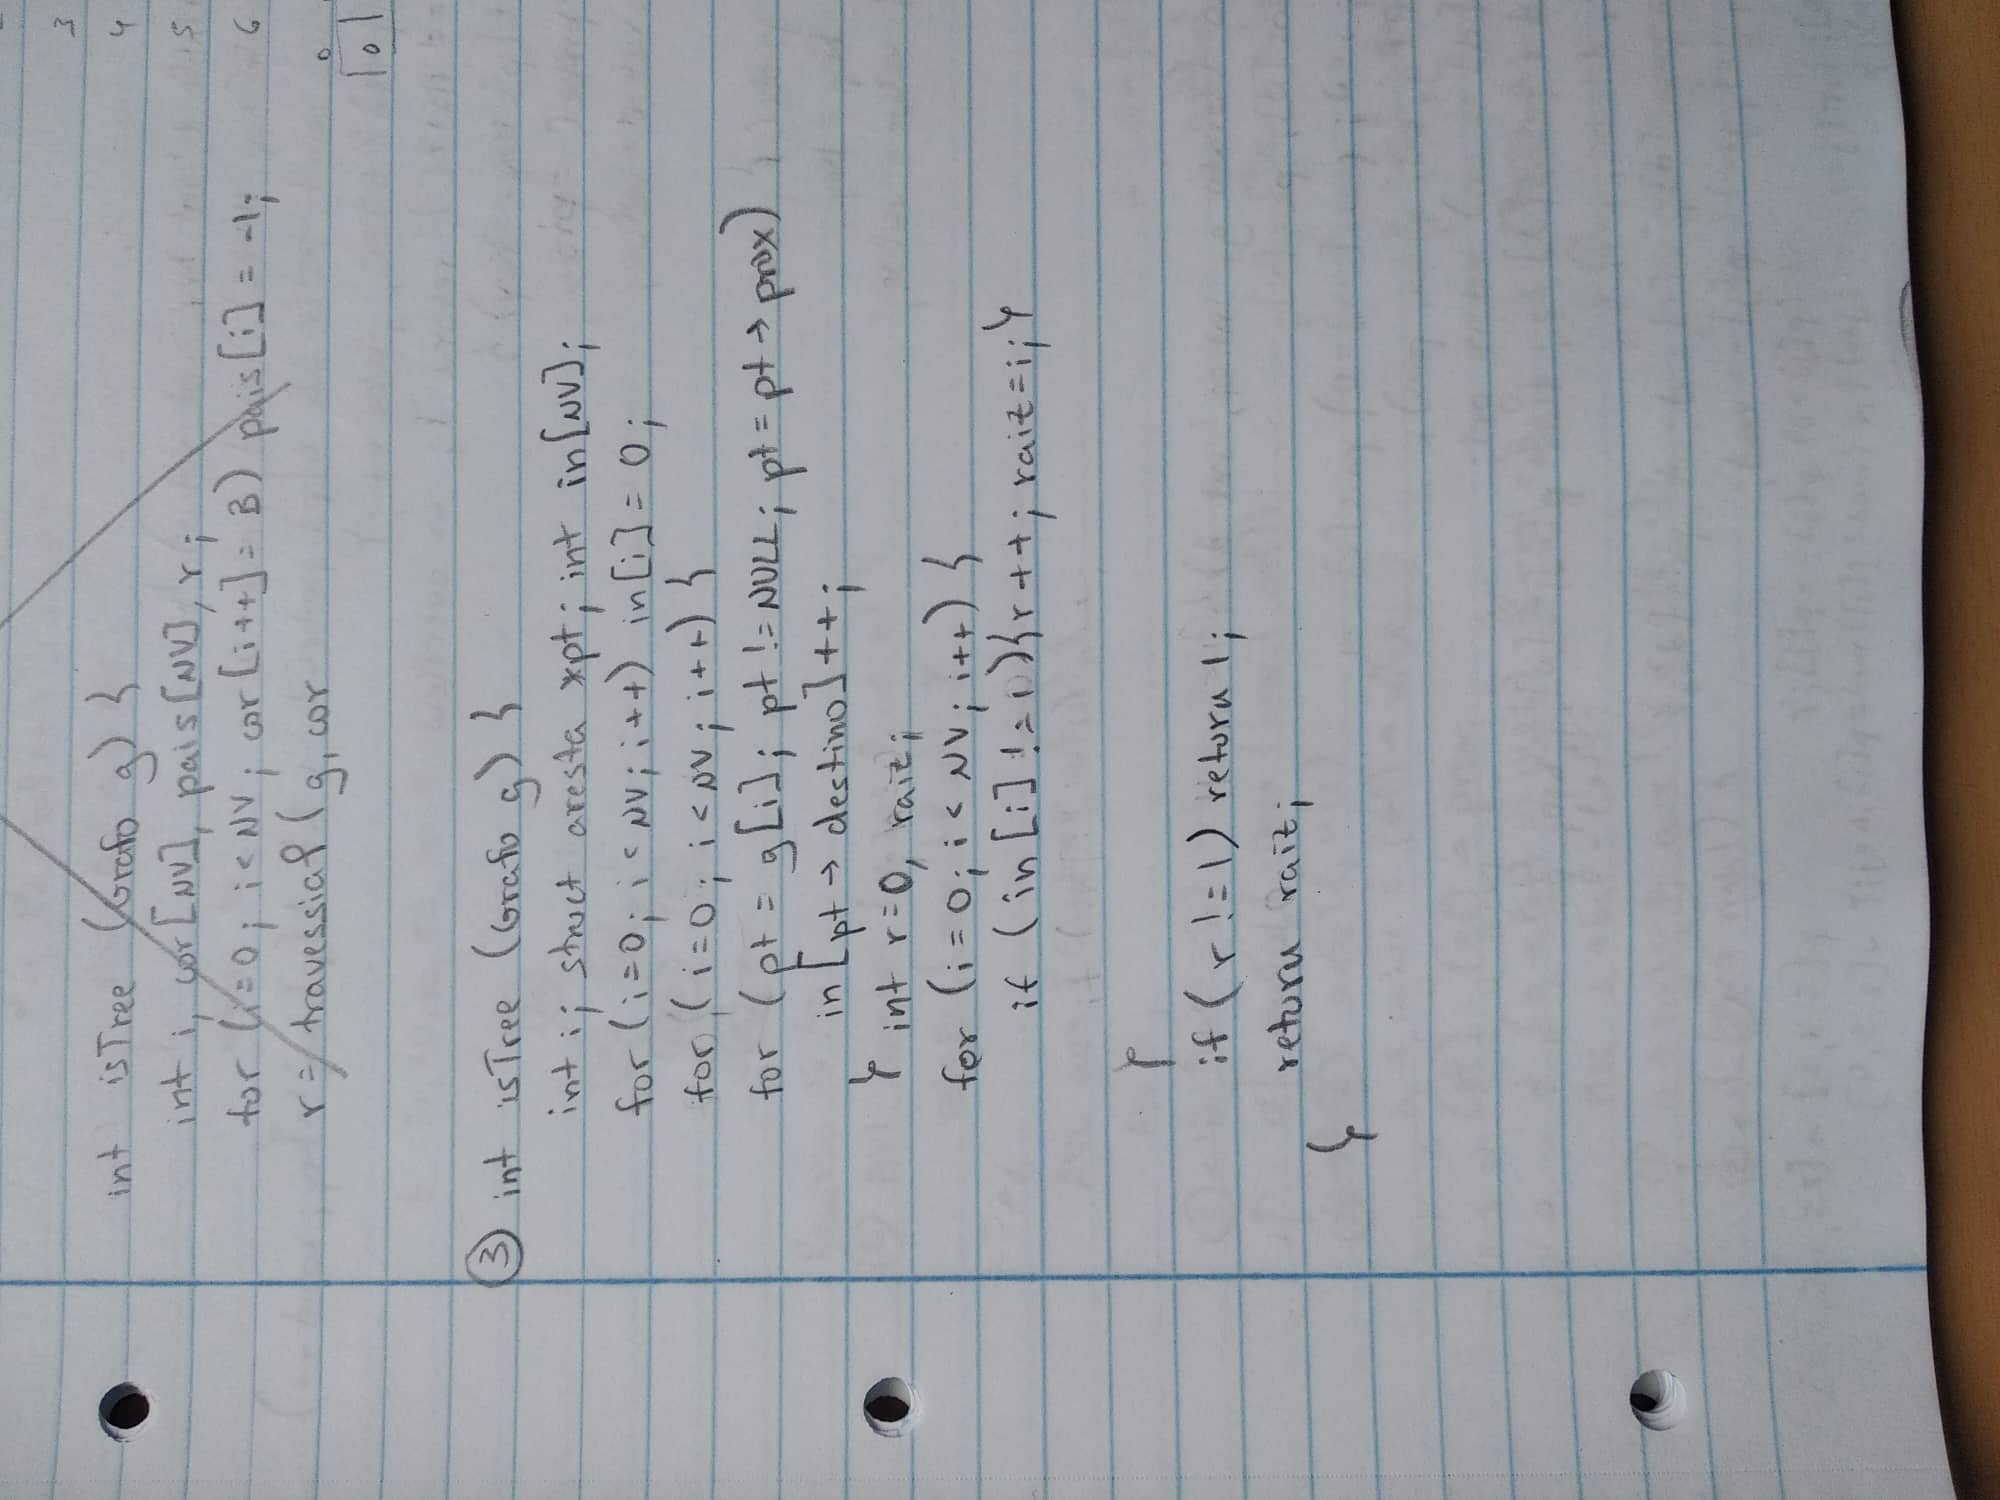 3
4
5
6
0
0
int isTree (Grafo g) {
int i, cor[NV], pais[NV], r;
for (i=0; i<NV; cor[i++]=B) pais[i]=-1;
r=travessiaP(g, cor
③ int isTree (Grafo g) {
int i; struct aresta *pt; int in[NV];
for (i=0; i<NV; i++) in[i]=0;
for (i=0; i<NV; i++) {
for (pt = g[i]; pt!=NULL; pt=pt→prox)
in[pt→destino]++;
} int r=0, raiz;
for (i=0; i<NV; i++) {
if (in[i]!=1){r++; raiz=i;}
}
if (r!=1) return 1;
return raiz;
}